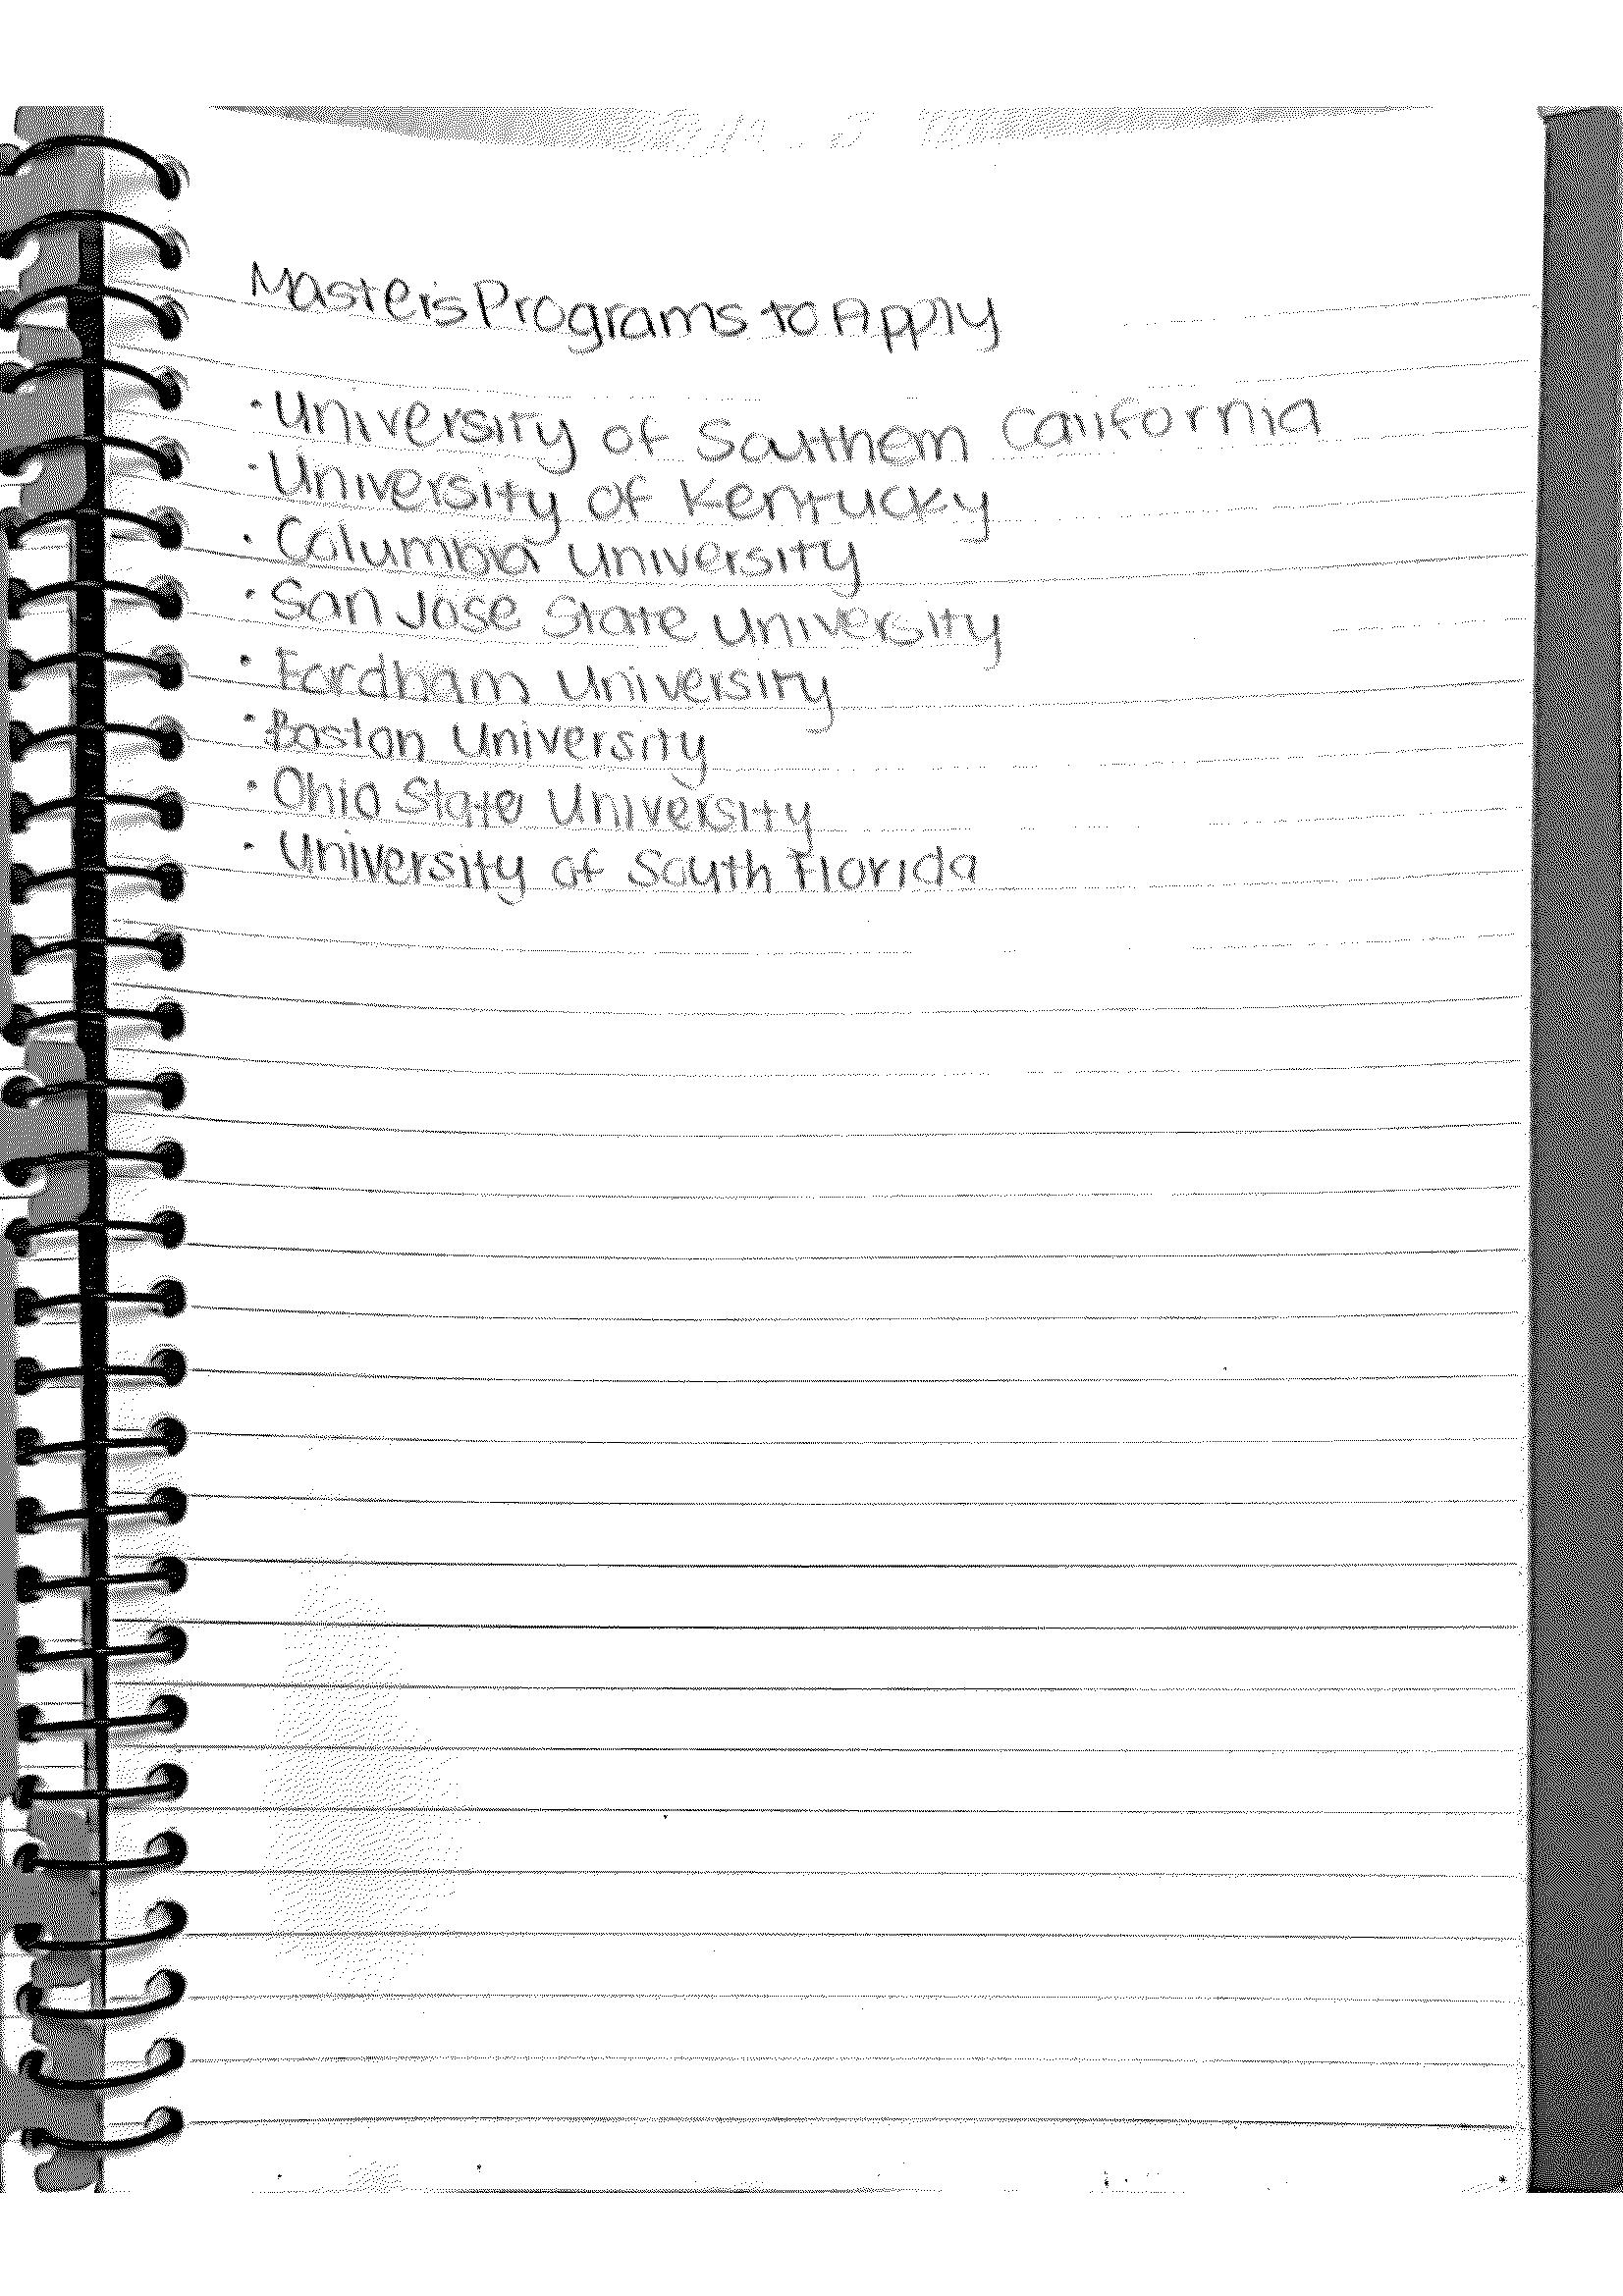 Masters Programs to Apply
· University of Southern California
· University of Kentucky
· Columbia University
· San Jose State University
· Fordham University
· Boston University
· Ohio State University
· University of South Florida